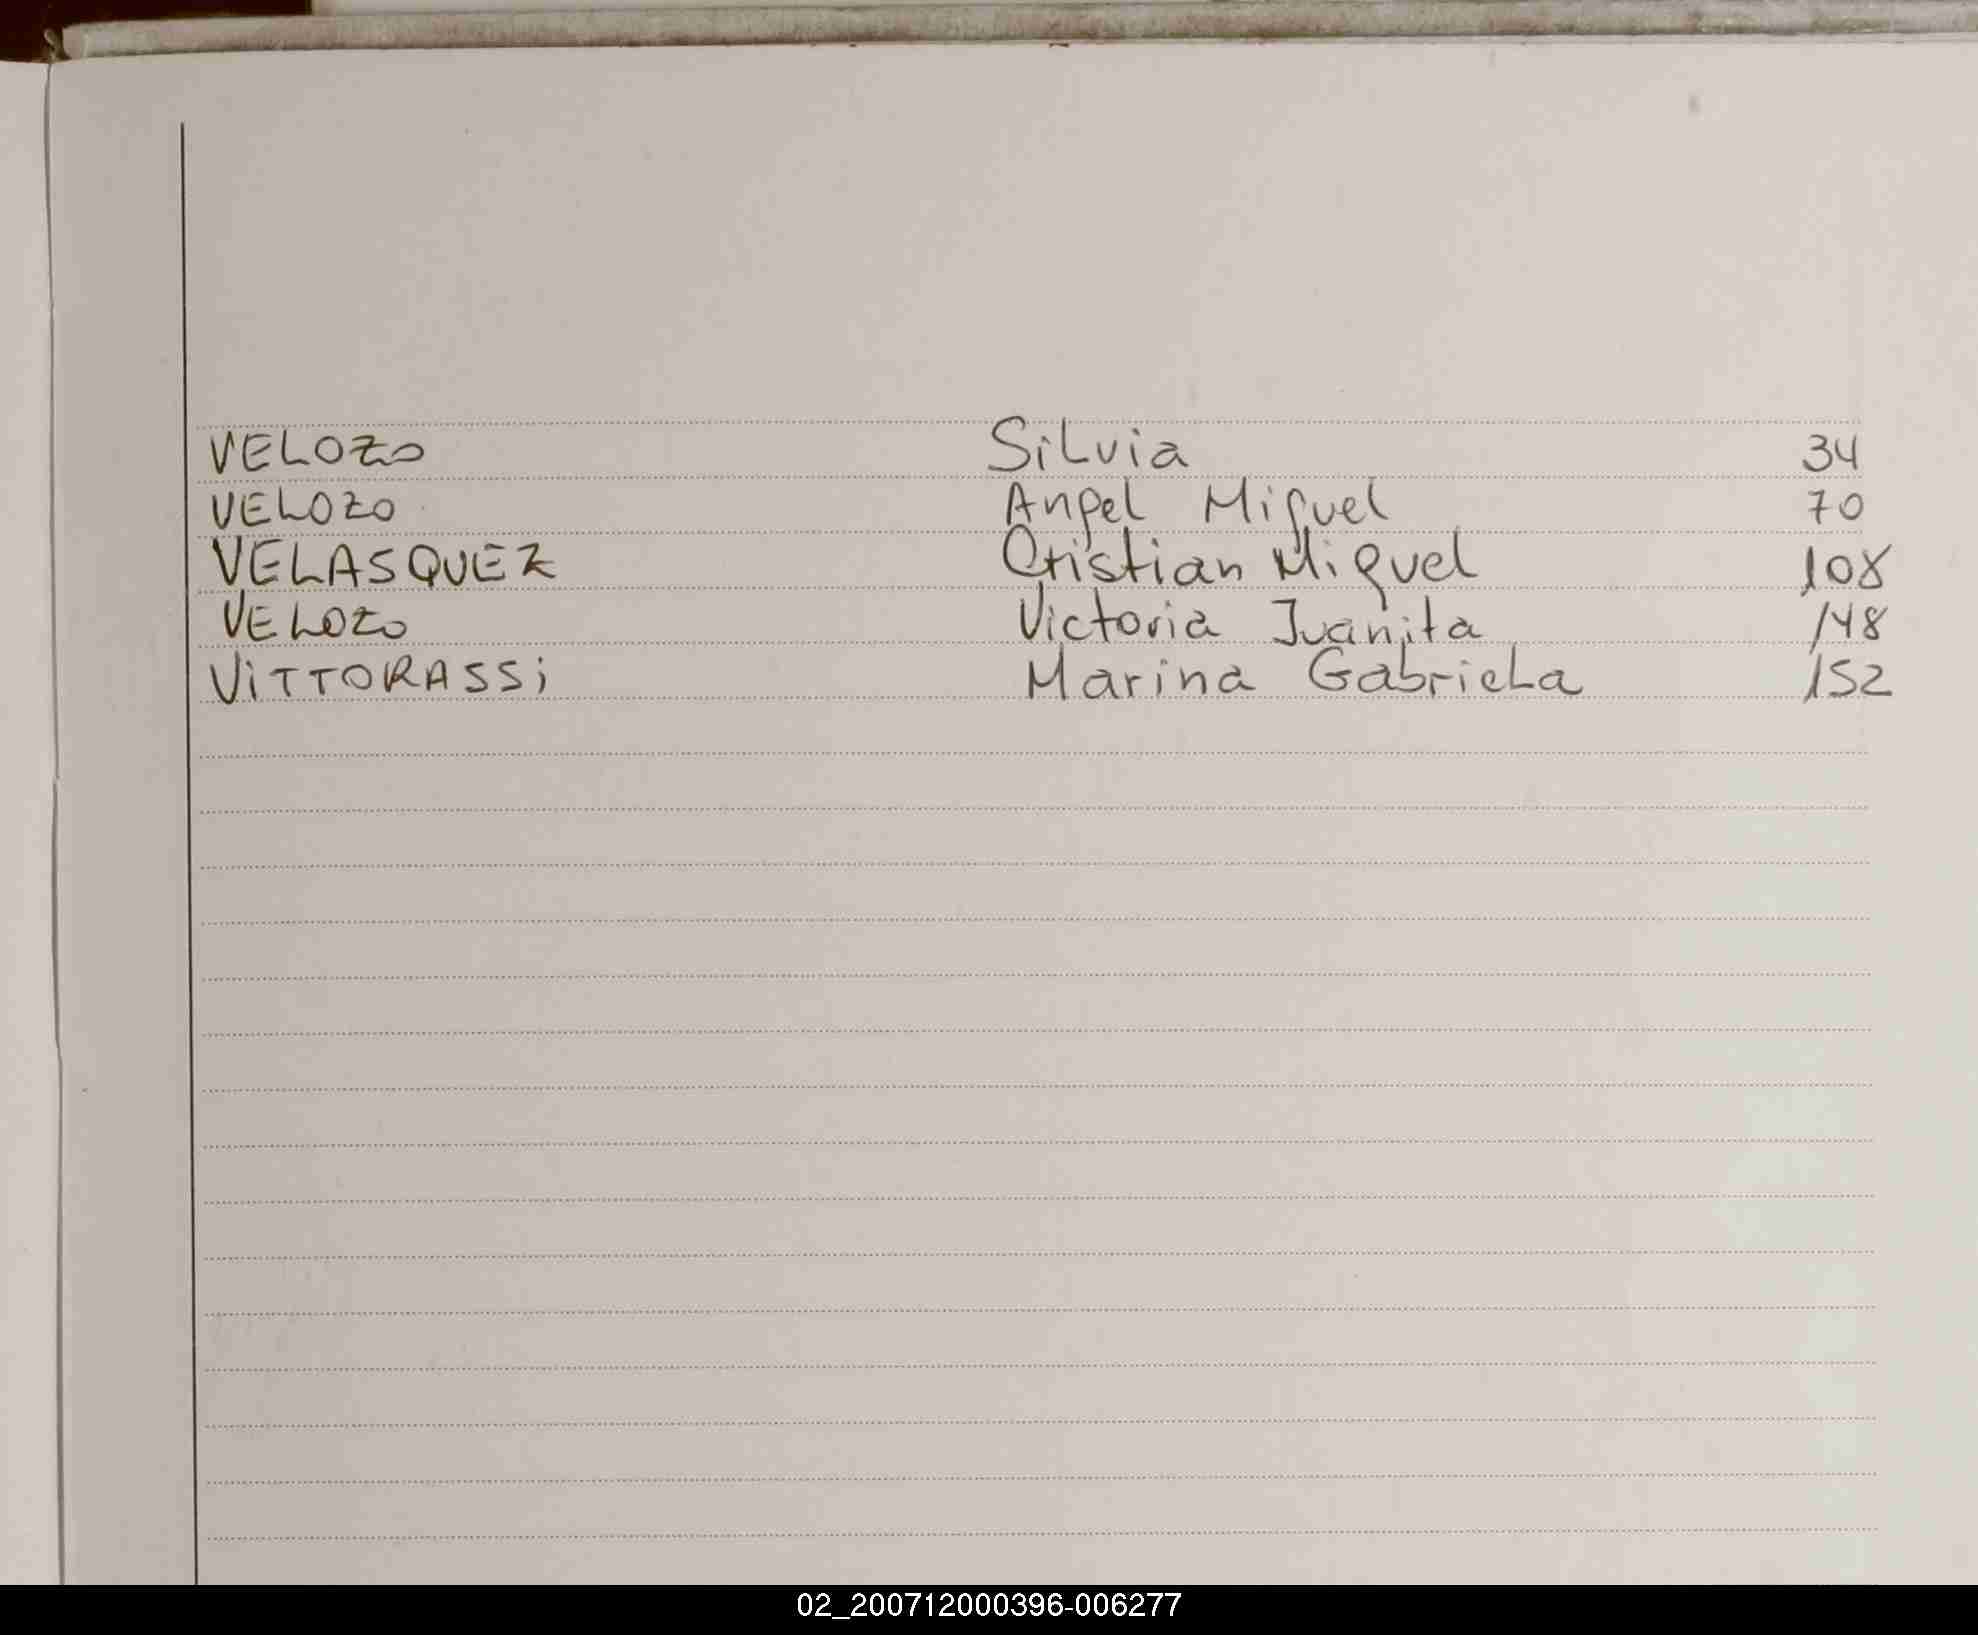 VELOZO Silvia 34
VELOZO Angel Miguel 70
VELASQUEZ Cristian Miguel 108
VELOZO Victoria Juanita 148
ViTTORASSi Marina Gabriela 152
02_200712000396-006277